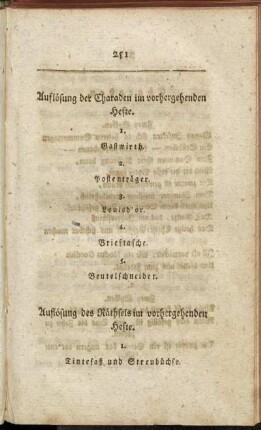 251
Auflösung der Charaden im vorhergehenden
Hefte.
1.
Gastwirth.
2.
Postenträger.
3.
Louisd'or.
4.
Brieftasche.
5.
Beutelschneider.
Auflösung des Räthsels im vorhergehenden
Hefte.
1.
Tintefaß und Streubüchse.